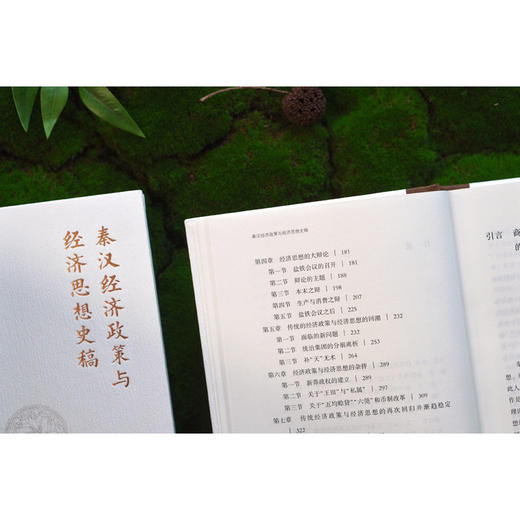 秦汉经济政策与
经济思想史稿
秦汉经济政策与经济思想史稿
第四章 经济思想的大辩论 / 181
第一节 盐铁会议的召开 / 181
第二节 辩论的主题 / 188
第三节 本末之辩 / 198
第四节 生产与消费之辩 / 207
第五节 盐铁会议之后 / 225
第五章 传统的经济政策与经济思想的回溯 / 232
第一节 面临的新问题 / 232
第二节 统治集团的分崩离析 / 253
第三节 补“天”无术 / 264
第六章 经济政策与经济思想的杂糅 / 289
第一节 新莽政权的建立 / 289
第二节 关于“王田”与“私属” / 293
第三节 关于“五均赊贷”“六筦”和币制改革 / 309
第七章 传统经济政策与经济思想的再次回归并渐趋稳定
/ 322
引言 商
的
想，
此人
作是
理论